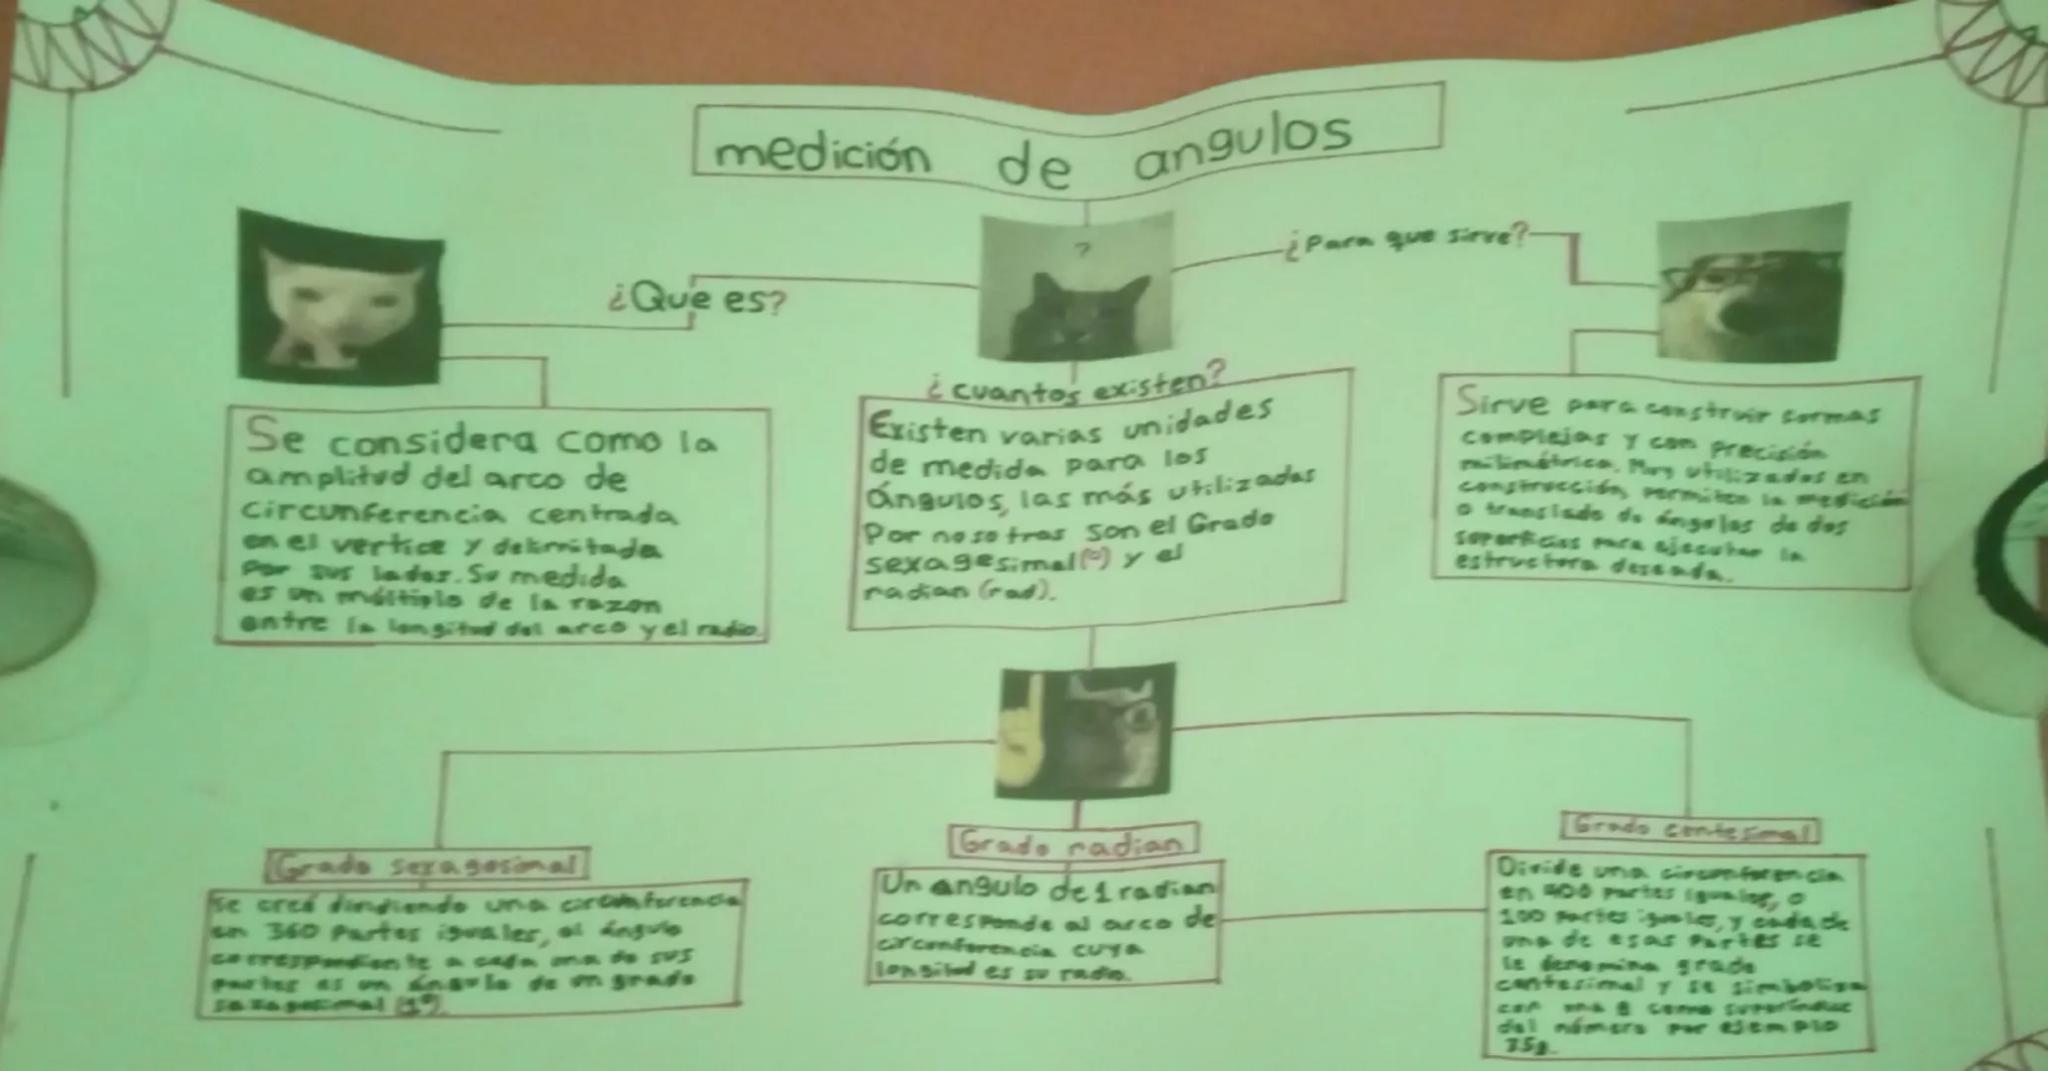 medición de angulos
¿Que es?
?
¿Para que sirve?
Se considera como la
amplitud del arco de
circunferencia centrada
en el vertice y delimitada
por sus lados. Su medida
es un múltiplo de la razon
entre la longitud del arco y el radio
¿cuantos existen?
Existen varias unidades
de medida para los
ángulos, las más utilizadas
Por nosotras son el Grado
sexagesimal (º) y el
radian (rad).
Sirve para construir formas
complejas y con precisión
milimétrica. Muy utilizados en
construcción, permiten la medición
o translado de ángulos de dos
superficies para ejecutar la
estructura deseada.
Grado sexagesimal
Se creá dividiendo una circunferencia
en 360 Partes iguales, al ángulo
correspondiente a cada una de sus
partes es un ángulo de un grado
sexagesimal (1º).
Grado radian
Un angulo de 1 radian
corresponde al arco de
circunferencia cuya
longitud es su radio.
Grado centesimal
Divide una circunferencia
en 400 partes iguales, o
100 partes iguales, y cada de
una de esas Partes se
le denomina grado
centesimal y se simboliza
con una g como superíndice
del número por ejemplo
35g.